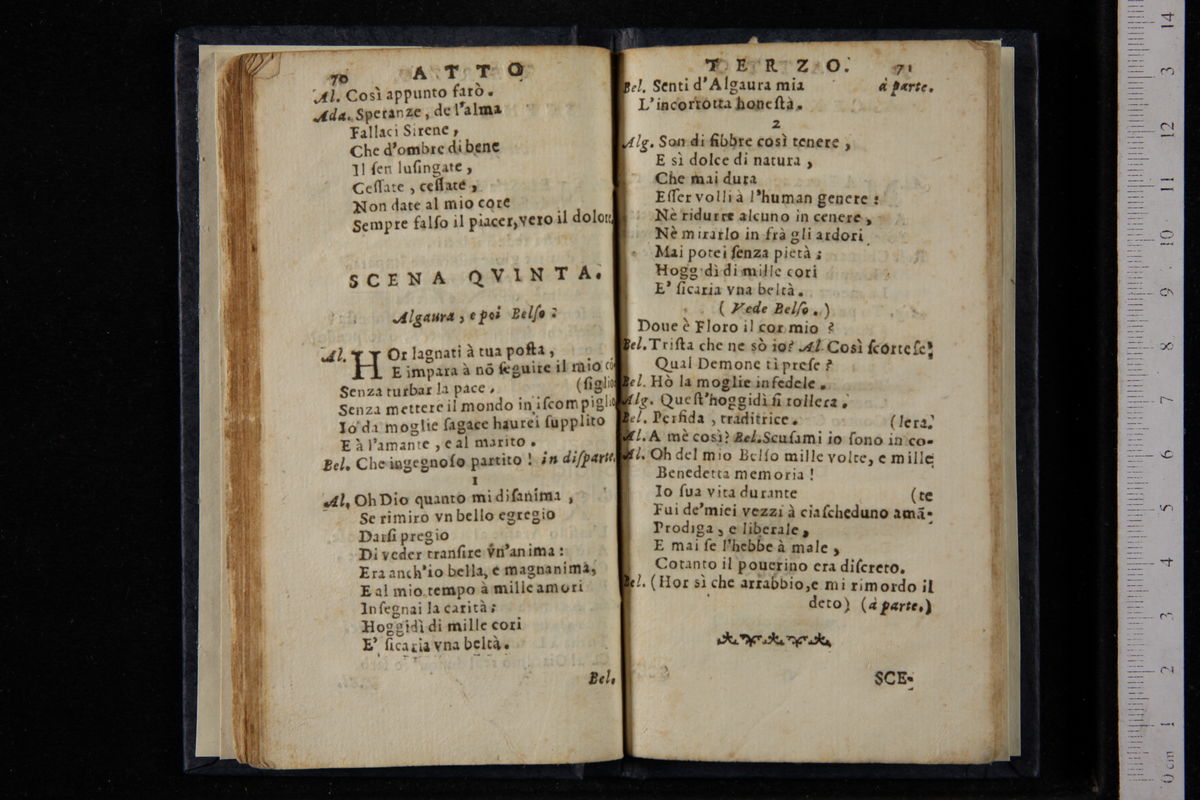 70 ATTO
Al. Così appunto farò.
Ada. Speranze, de l'alma
Fallaci Sirene,
Che d'ombre di bene
Il ſen luſingate,
Ceſſate, ceſſate,
Non date al mio core
Sempre falſo il piacer, vero il dolore.
SCENA QVINTA.
Algaura, e poi Belſo.
Al. HOr lagnati à tua poſta,
E impara à nõ ſeguire il mio cõ
Senza turbar la pace. (ſiglio
Senza mettere il mondo in iſcompiglio
Io da moglie ſagace haurei ſupplito
E à l'amante, e al marito.
Bel. Che ingegnoſo partito! in diſparte.
1
Al. Oh Dio quanto mi diſanima,
Se rimiro vn bello egregio
Darſi pregio
Di veder tranſire vn'anima:
Era anch'io bella, e magnanima,
E al mio tempo à mille amori
Inſegnai la carità;
Hoggidì di mille cori
E' ſicaria vna beltà.
Bel.
TERZO. 71
Bel. Senti d'Algaura mia à parte.
L'incorrotta honeſtà.
2
Alg. Son di fibbre così tenere,
E sì dolce di natura,
Che mai dura
Eſſer volli à l'human genere:
Nè ridurre alcuno in cenere,
Nè mirarlo in frà gli ardori
Mai potei ſenza pietà;
Hogg dì di mille cori
E' ſicaria vna beltà.
(Vede Belſo.)
Doue è Floro il cor mio?
Bel. Triſta che ne sò io? Al. Così ſcorteſe!
Qual Demone ti preſe?
Bel. Hò la moglie infedele.
Alg. Queſt'hoggidì ſi tollera.
Bel. Perfida, traditrice. (lera.
Al. A mè così? Bel. Scuſami io ſono in co-
Al. Oh del mio Belſo mille volte, e mille
Benedetta memoria!
Io ſua vita durante (te
Fui de'miei vezzi à ciaſcheduno amã-
Prodiga, e liberale,
E mai ſe l'hebbe à male,
Cotanto il pouerino era diſcreto.
Bel. (Hor sì che arrabbio, e mi rimordo il
deto) (à parte.)
SCE-
0 cm 1 2 3 4 5 6 7 8 9 10 11 12 3 14